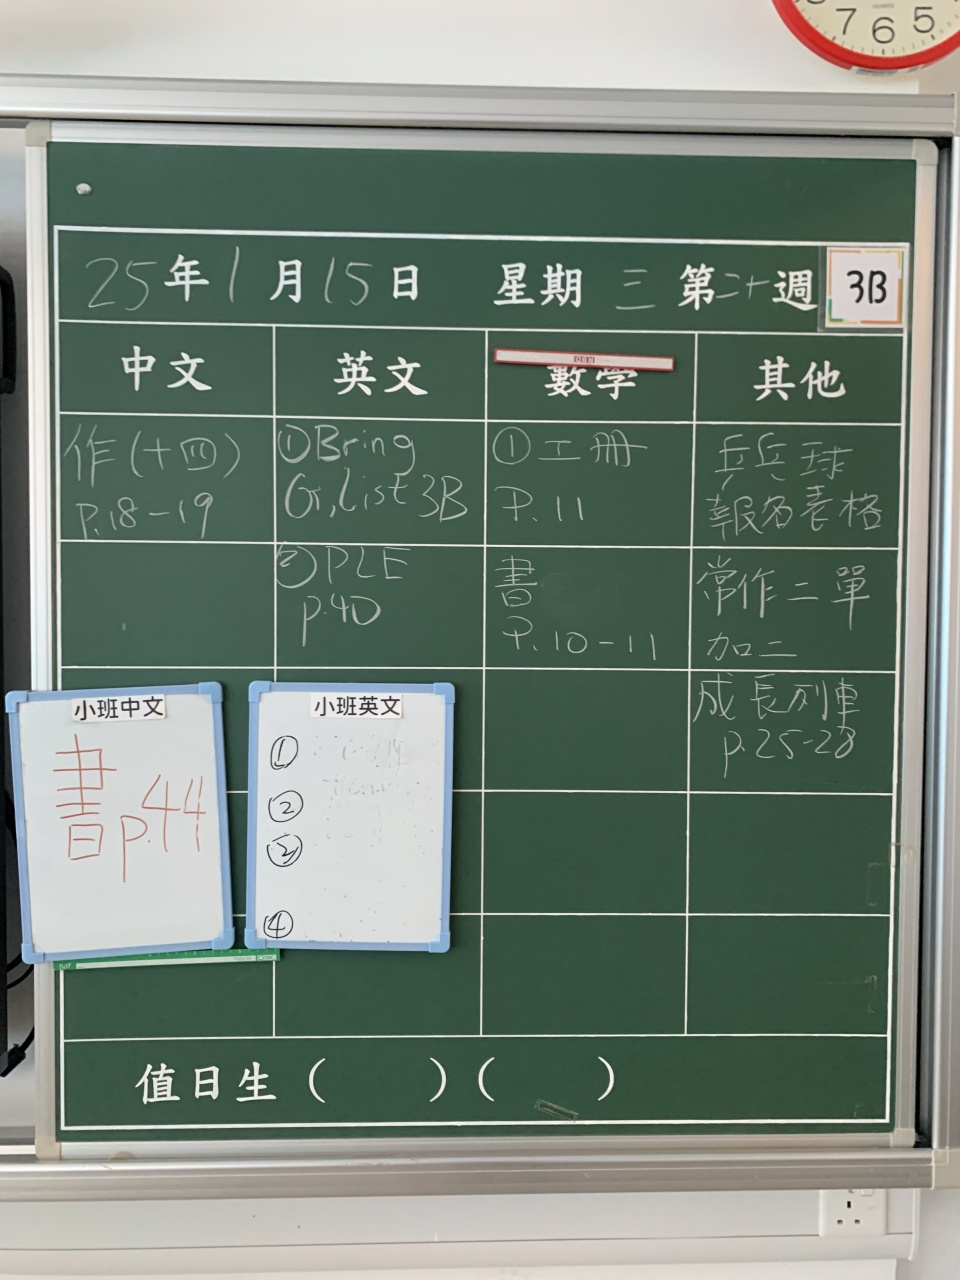 7 6 5
QUARTZ
25年1月15日 星期三第二十週 3B
中文 英文 數學 其他
作(十四)
P.18-19
①Bring
G.List 3B
②PLE
p.40
①工冊
P.11
書
P.10-11
乒乓球
報名表格
常作二單
加二
成長列車
p.25-28
小班中文
書p.44
小班英文
①
②
③
④
值日生( )( )